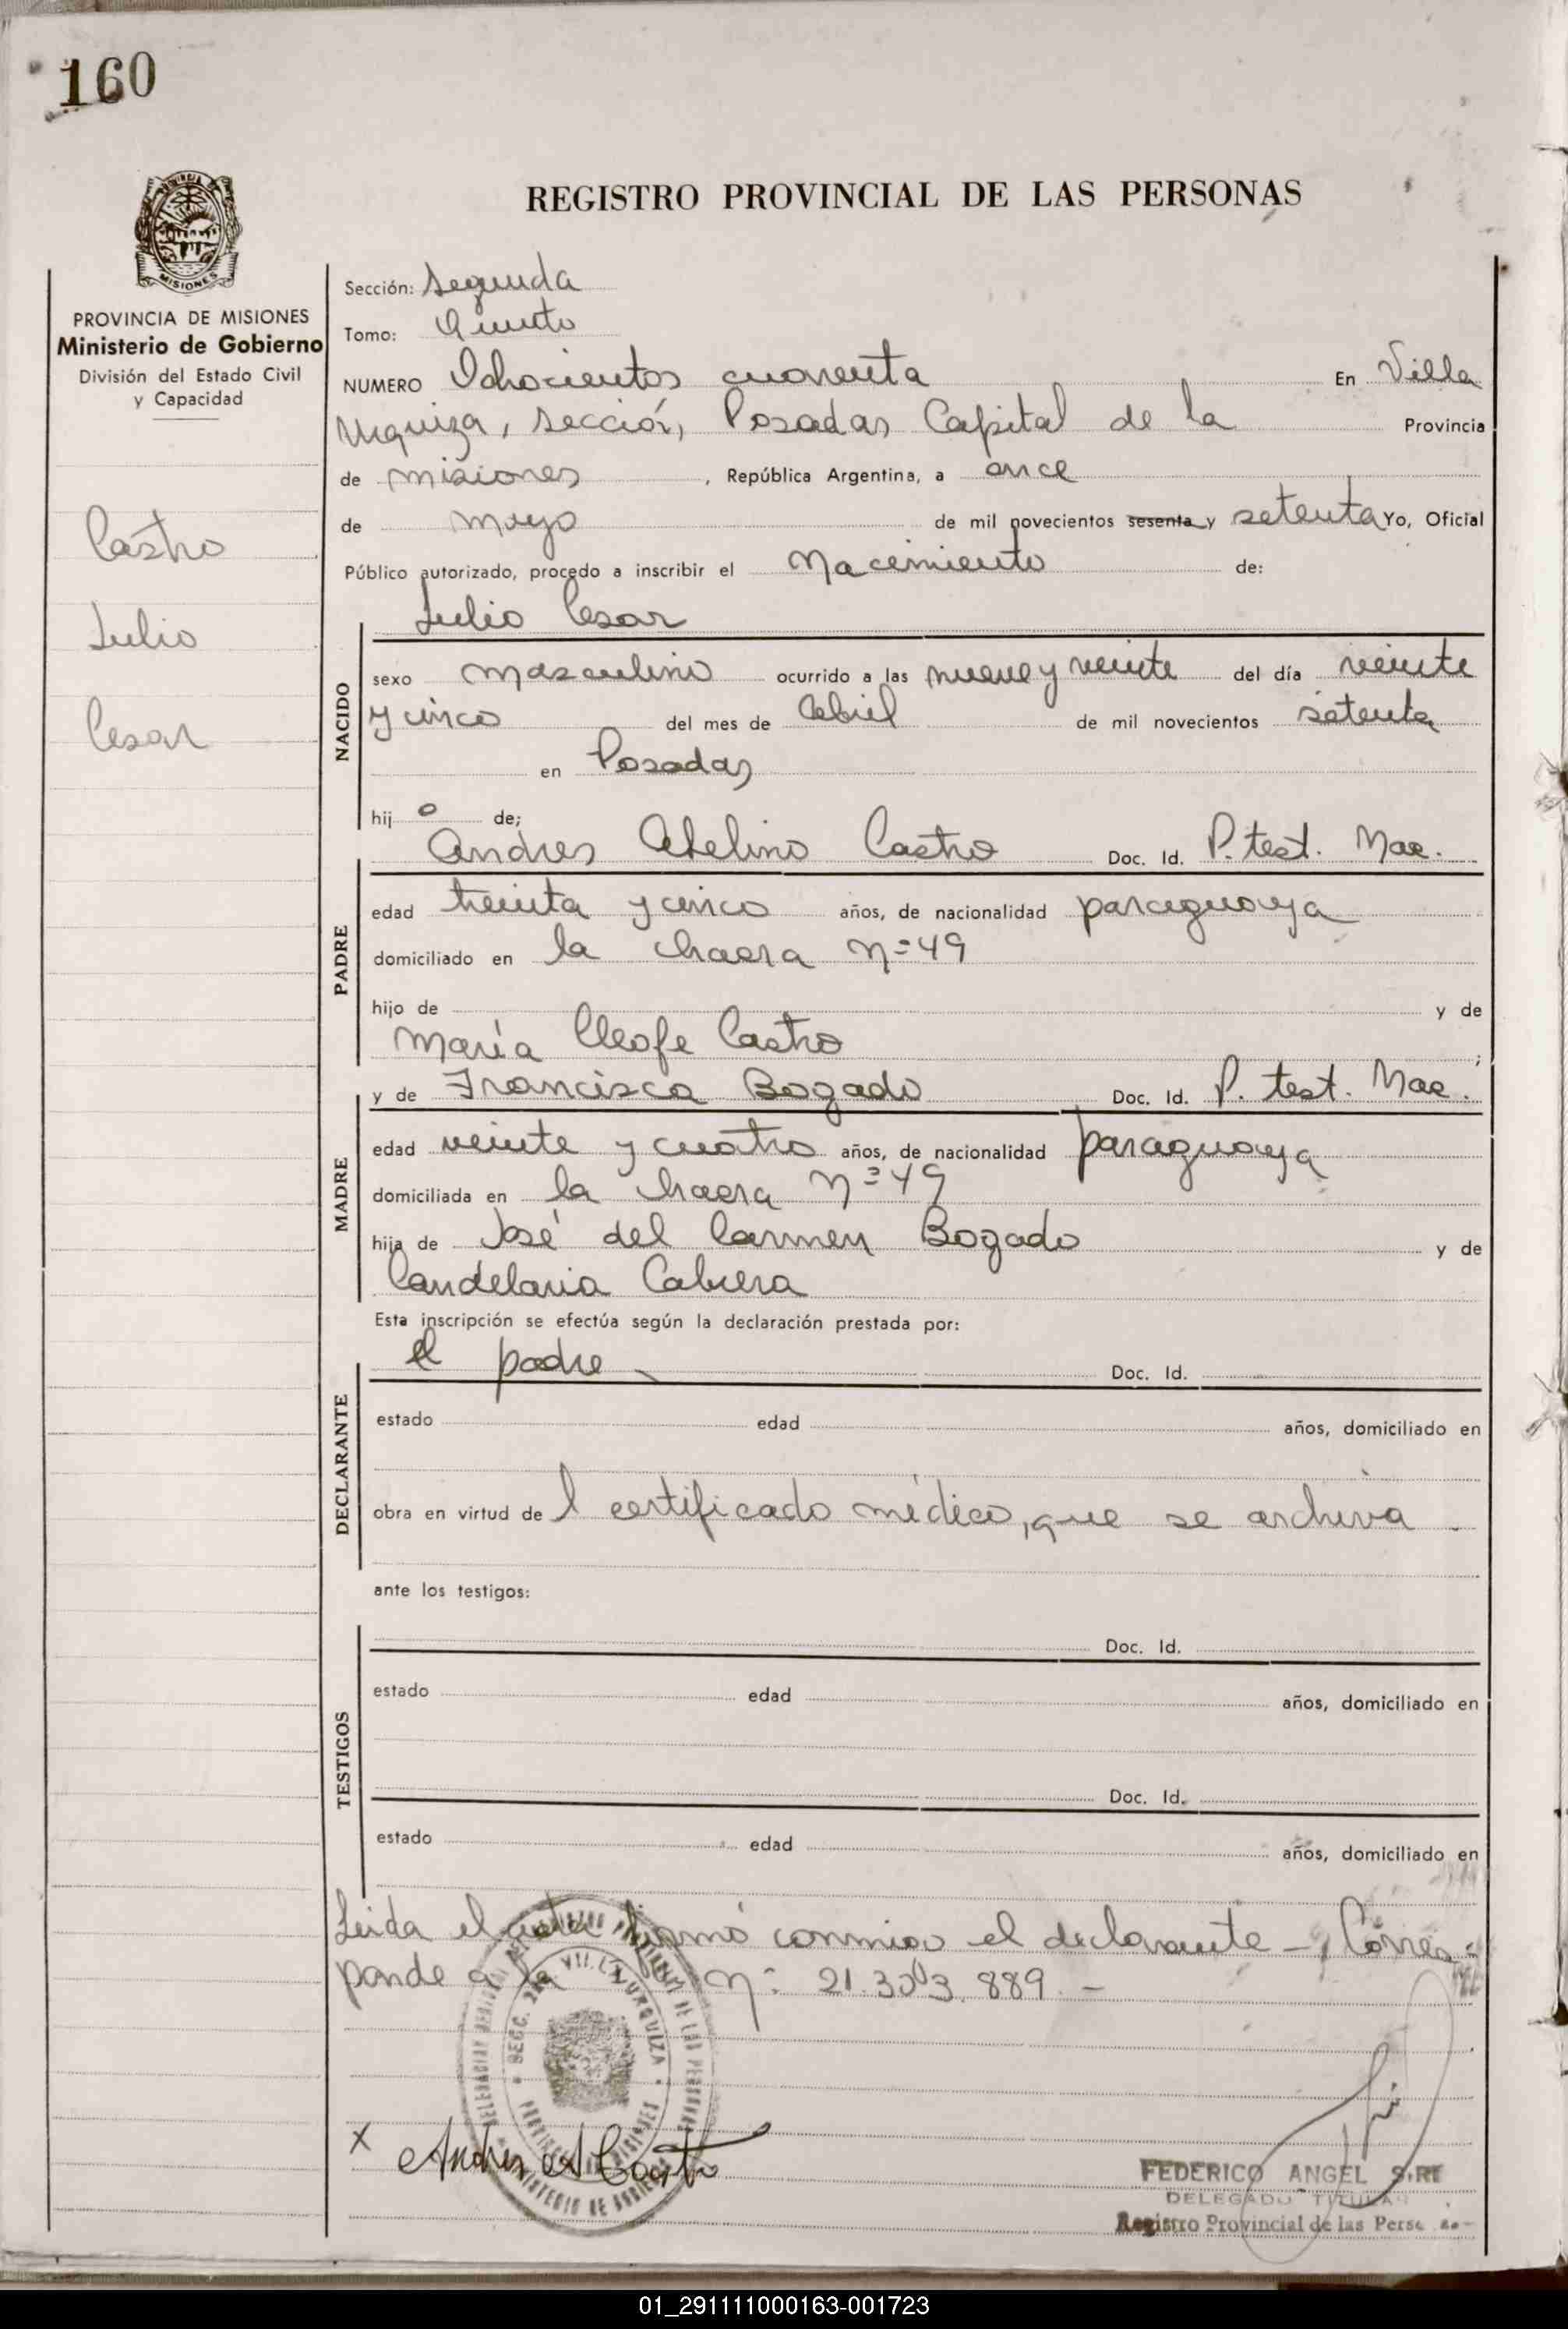 160
REGISTRO PROVINCIAL DE LAS PERSONAS
MISIONES
PROVINCIA DE MISIONES
Ministerio de Gobierno
División del Estado Civil
y Capacidad
Castro
Julio
Cesar
Sección: Segunda
Tomo: Quinto
NUMERO Ochocientos cuarenta En Villa
Urquiza, sección, Posadas Capital de la Provincia
de misiones, República Argentina, a once
de mayo de mil novecientos sesenta y setenta Yo, Oficial
Público autorizado, procedo a inscribir el Nacimiento de:
Julio Cesar
NACIDO
sexo masculino ocurrido a las nueve y veinte del día veinte
y cinco del mes de Abril de mil novecientos setenta
en Posadas
hij o de;
Andres Abelino Castro Doc. Id. P. test. Mae.
PADRE
edad treinta y cinco años, de nacionalidad paraguaya
domiciliado en la chacra Nº 49
hijo de y de
María Cleofe Castro ;
y de Francisca Bogado Doc. Id. P. test. Mae.
MADRE
edad veinte y cuatro años, de nacionalidad paraguaya
domiciliada en la chacra Nº 49
hija de José del Carmen Bogado y de
Candelaria Cabrera
Esta inscripción se efectúa según la declaración prestada por:
el padre Doc. Id.
DECLARANTE
estado edad años, domiciliado en
obra en virtud de l certificado médico, que se archiva
ante los testigos:
Doc. Id.
TESTIGOS
estado edad años, domiciliado en
Doc. Id.
estado edad años, domiciliado en
Leida el acta, firmó conmigo el declarante -, Corres=
ponde a la Nº 21.303.889 -
SECC. 2da VILLA URQUIZA
PROVINCIA DE MISIONES
X Andres A Castro
FEDERICO ANGEL SIRI
DELEGADO TITULAR
Registro Provincial de las Perso
01_291111000163-001723